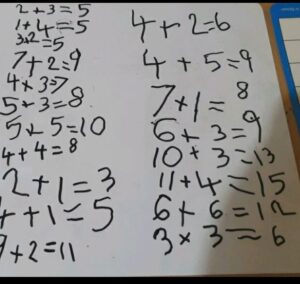 2+3=5
1+4=5
3+2=5
7+2=9
4+3=7
5+3=8
5+5=10
4+4=8
2+1=3
4+1=5
9+2=11
4+2=6
4+5=9
7+1=8
6+3=9
10+3=13
11+4=15
6+6=12
3×3=6